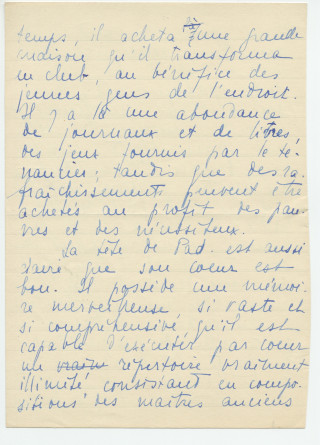 temps, il acheta une grande
maison qu'il transforma
en club, au bénéfice des
jeunes gens de l'endroit.
Il y a là une abondance
de journaux et de livres,
des jeux fournis par le té-
nancier; tandis que des ra-
fraîchissements peuvent être
achetés au profit des pau-
vres et des nécessiteux.
La tête de Pad. est aussi
claire que son coeur est
bon. Il possède une mémoi-
re merveilleuse, si vaste et
si compréhensive qu'il est
capable d'éxécuter par coeur
un répertoire vraiment
illimité consistant en compo-
sitions des maîtres anciens